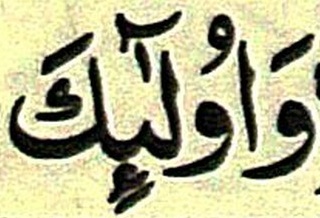 وَاُولٰٓئِكَ